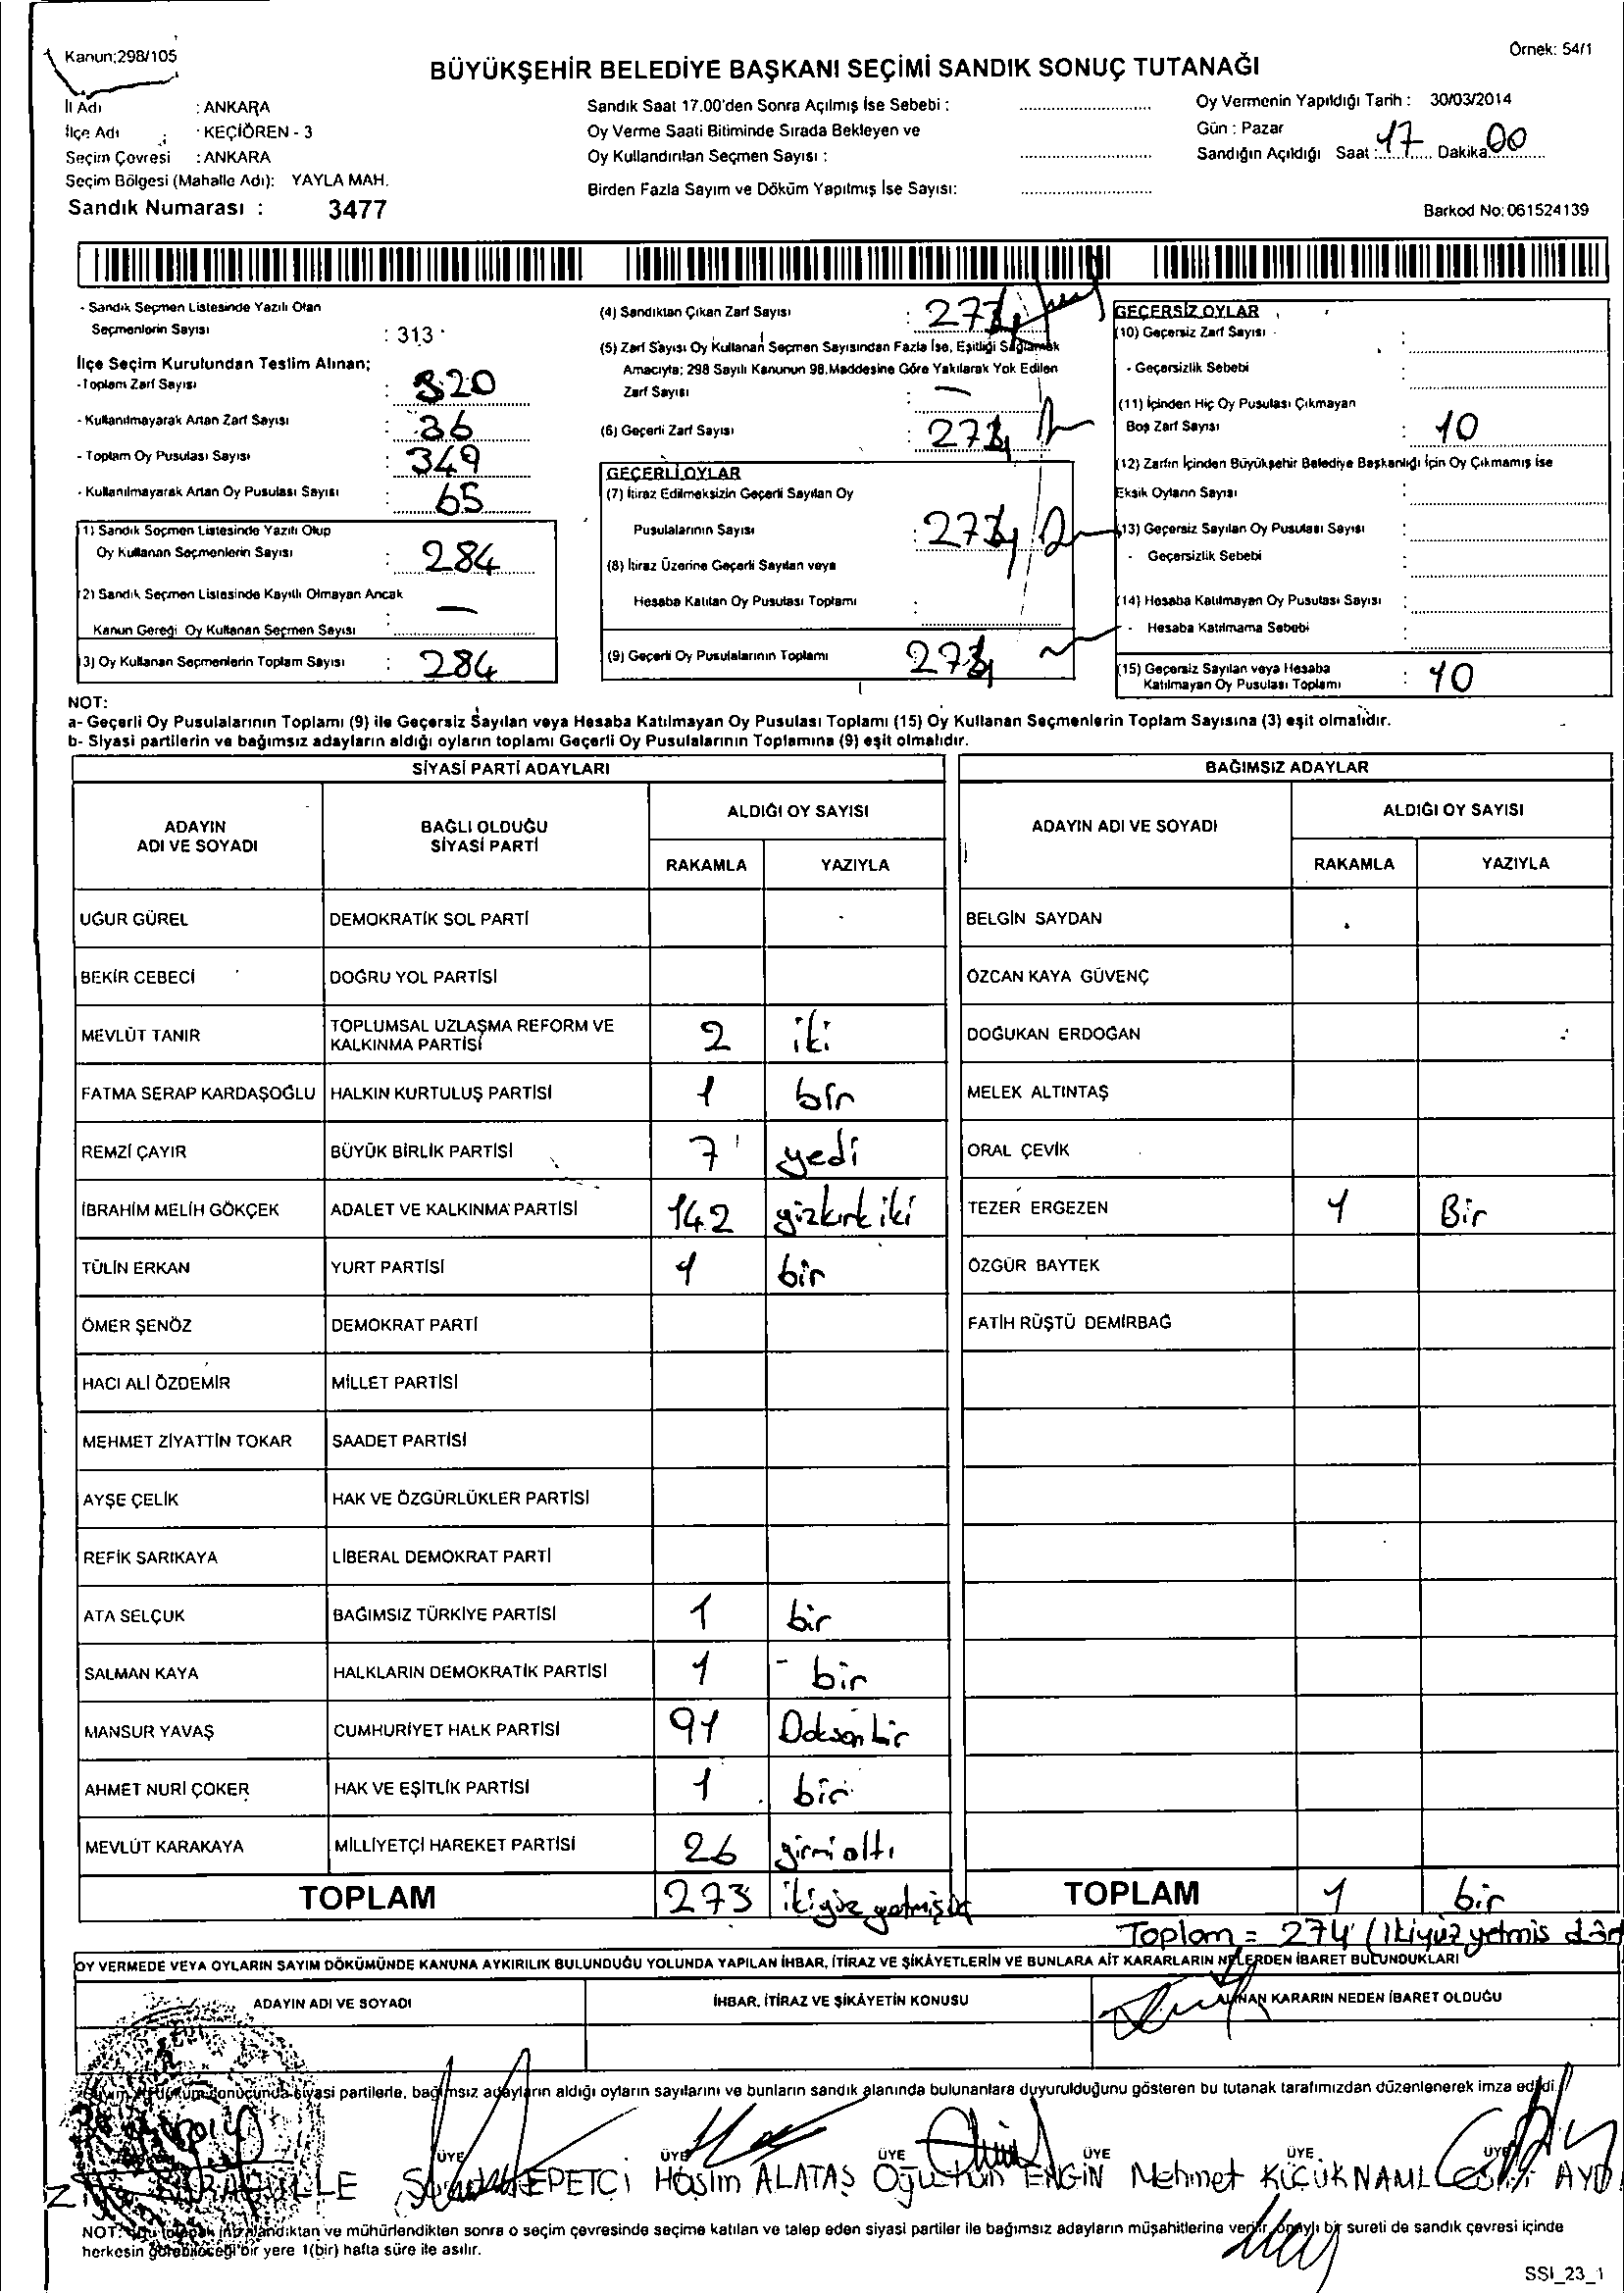 Kanun:298/105
Örnek: 54/1
BÜYÜKŞEHİR BELEDİYE BAŞKANI SEÇİMİ SANDIK SONUÇ TUTANAĞI
İl Adı : ANKARA
İlçe Adı : KEÇİÖREN - 3
Seçim Çevresi : ANKARA
Seçim Bölgesi (Mahalle Adı): YAYLA MAH.
Sandık Numarası : 3477
Sandık Saat 17.00'den Sonra Açılmış İse Sebebi :
Oy Verme Saati Bitiminde Sırada Bekleyen ve
Oy Kullandırılan Seçmen Sayısı :
Birden Fazla Sayım ve Döküm Yapılmış İse Sayısı:
Oy Vermenin Yapıldığı Tarih : 30/03/2014
Gün : Pazar
Sandığın Açıldığı Saat : 17 Dakika 00
Barkod No:061524139
- Sandık Seçmen Listesinde Yazılı Olan
Seçmenlerin Sayısı : 313
İlçe Seçim Kurulundan Teslim Alınan;
-Toplam Zarf Sayısı : 320
- Kullanılmayarak Artan Zarf Sayısı : 36
- Toplam Oy Pusulası Sayısı : 349
- Kullanılmayarak Artan Oy Pusulası Sayısı : 65
(1) Sandık Seçmen Listesinde Yazılı Olup
Oy Kullanan Seçmenlerin Sayısı : 284
(2) Sandık Seçmen Listesinde Kayıtlı Olmayan Ancak
Kanun Gereği Oy Kullanan Seçmen Sayısı : —
(3) Oy Kullanan Seçmenlerin Toplam Sayısı : 284
(4) Sandıktan Çıkan Zarf Sayısı :
(5) Zarf Sayısı Oy Kullanan Seçmen Sayısından Fazla İse, Eşitliği Sağlamak
Amacıyla; 298 Sayılı Kanunun 98.Maddesine Göre Yakılarak Yok Edilen
Zarf Sayısı : —
(6) Geçerli Zarf Sayısı :
GEÇERLİ OYLAR
(7) İtiraz Edilmeksizin Geçerli Sayılan Oy
Pusulalarının Sayısı :
(8) İtiraz Üzerine Geçerli Sayılan veya
Hesaba Katılan Oy Pusulası Toplamı :
(9) Geçerli Oy Pusulalarının Toplamı
GEÇERSİZ OYLAR
(10) Geçersiz Zarf Sayısı :
- Geçersizlik Sebebi :
(11) İçinden Hiç Oy Pusulası Çıkmayan
Boş Zarf Sayısı : 10
(12) Zarfın İçinden Büyükşehir Belediye Başkanlığı İçin Oy Çıkmamış İse
Eksik Oyların Sayısı :
(13) Geçersiz Sayılan Oy Pusulası Sayısı :
- Geçersizlik Sebebi :
(14) Hesaba Katılmayan Oy Pusulası Sayısı :
- Hesaba Katılmama Sebebi :
(15) Geçersiz Sayılan veya Hesaba
Katılmayan Oy Pusulası Toplamı : 10
NOT:
a- Geçerli Oy Pusulalarının Toplamı (9) ile Geçersiz Sayılan veya Hesaba Katılmayan Oy Pusulası Toplamı (15) Oy Kullanan Seçmenlerin Toplam Sayısına (3) eşit olmalıdır.
b- Siyasi partilerin ve bağımsız adayların aldığı oyların toplamı Geçerli Oy Pusulalarının Toplamına (9) eşit olmalıdır.
SİYASİ PARTİ ADAYLARI
BAĞIMSIZ ADAYLAR
ADAYIN ADI VE SOYADI
BAĞLI OLDUĞU SİYASİ PARTİ
ALDIĞI OY SAYISI
RAKAMLA YAZIYLA
ADAYIN ADI VE SOYADI
ALDIĞI OY SAYISI
RAKAMLA YAZIYLA
UĞUR GÜREL DEMOKRATİK SOL PARTİ BELGİN SAYDAN
BEKİR CEBECİ DOĞRU YOL PARTİSİ ÖZCAN KAYA GÜVENÇ
MEVLÜT TANIR TOPLUMSAL UZLAŞMA REFORM VE KALKINMA PARTİSİ 2 iki DOĞUKAN ERDOĞAN
FATMA SERAP KARDAŞOĞLU HALKIN KURTULUŞ PARTİSİ 1 bir MELEK ALTINTAŞ
REMZİ ÇAYIR BÜYÜK BİRLİK PARTİSİ 7 yedi ORAL ÇEVİK
İBRAHİM MELİH GÖKÇEK ADALET VE KALKINMA PARTİSİ 142 yüzkırkiki TEZER ERGEZEN 1 Bir
TÜLİN ERKAN YURT PARTİSİ 1 bir ÖZGÜR BAYTEK
ÖMER ŞENÖZ DEMOKRAT PARTİ FATİH RÜŞTÜ DEMİRBAĞ
HACI ALİ ÖZDEMİR MİLLET PARTİSİ
MEHMET ZİYATTİN TOKAR SAADET PARTİSİ
AYŞE ÇELİK HAK VE ÖZGÜRLÜKLER PARTİSİ
REFİK SARIKAYA LİBERAL DEMOKRAT PARTİ
ATA SELÇUK BAĞIMSIZ TÜRKİYE PARTİSİ 1 bir
SALMAN KAYA HALKLARIN DEMOKRATİK PARTİSİ 1 bir
MANSUR YAVAŞ CUMHURİYET HALK PARTİSİ 91 Doksanbir
AHMET NURİ ÇOKER HAK VE EŞİTLİK PARTİSİ 1 bir
MEVLÜT KARAKAYA MİLLİYETÇİ HAREKET PARTİSİ 26 yirmialtı
TOPLAM 273 TOPLAM 1 bir
Toplam = 274 (İkiyüzyetmis dört
OY VERMEDE VEYA OYLARIN SAYIM DÖKÜMÜNDE KANUNA AYKIRILIK BULUNDUĞU YOLUNDA YAPILAN İHBAR, İTİRAZ VE ŞİKÂYETLERİN VE BUNLARA AİT KARARLARIN NELERDEN İBARET BULUNDUKLARI
ADAYIN ADI VE SOYADI İHBAR, İTİRAZ VE ŞİKÂYETİN KONUSU ALINAN KARARIN NEDEN İBARET OLDUĞU
Sayım ve döküm sonucunda siyasi partilerle, bağımsız adayların aldığı oyların sayılarını ve bunların sandık alanında bulunanlara duyurulduğunu gösteren bu tutanak tarafımızdan düzenlenerek imza edildi.
ÜYE ÜYE ÜYE ÜYE ÜYE ÜYE
Haşim ALATAŞ ENGİN Mehmet KÜÇÜKNAMLI
NOT: ve mühürlendikten sonra o seçim çevresinde seçime katılan ve talep eden siyasi partiler ile bağımsız adayların müşahitlerine verilir, onaylı bir sureti de sandık çevresi içinde
herkesin görebileceği bir yere 1(bir) hafta süre ile asılır.
SSI_23_1